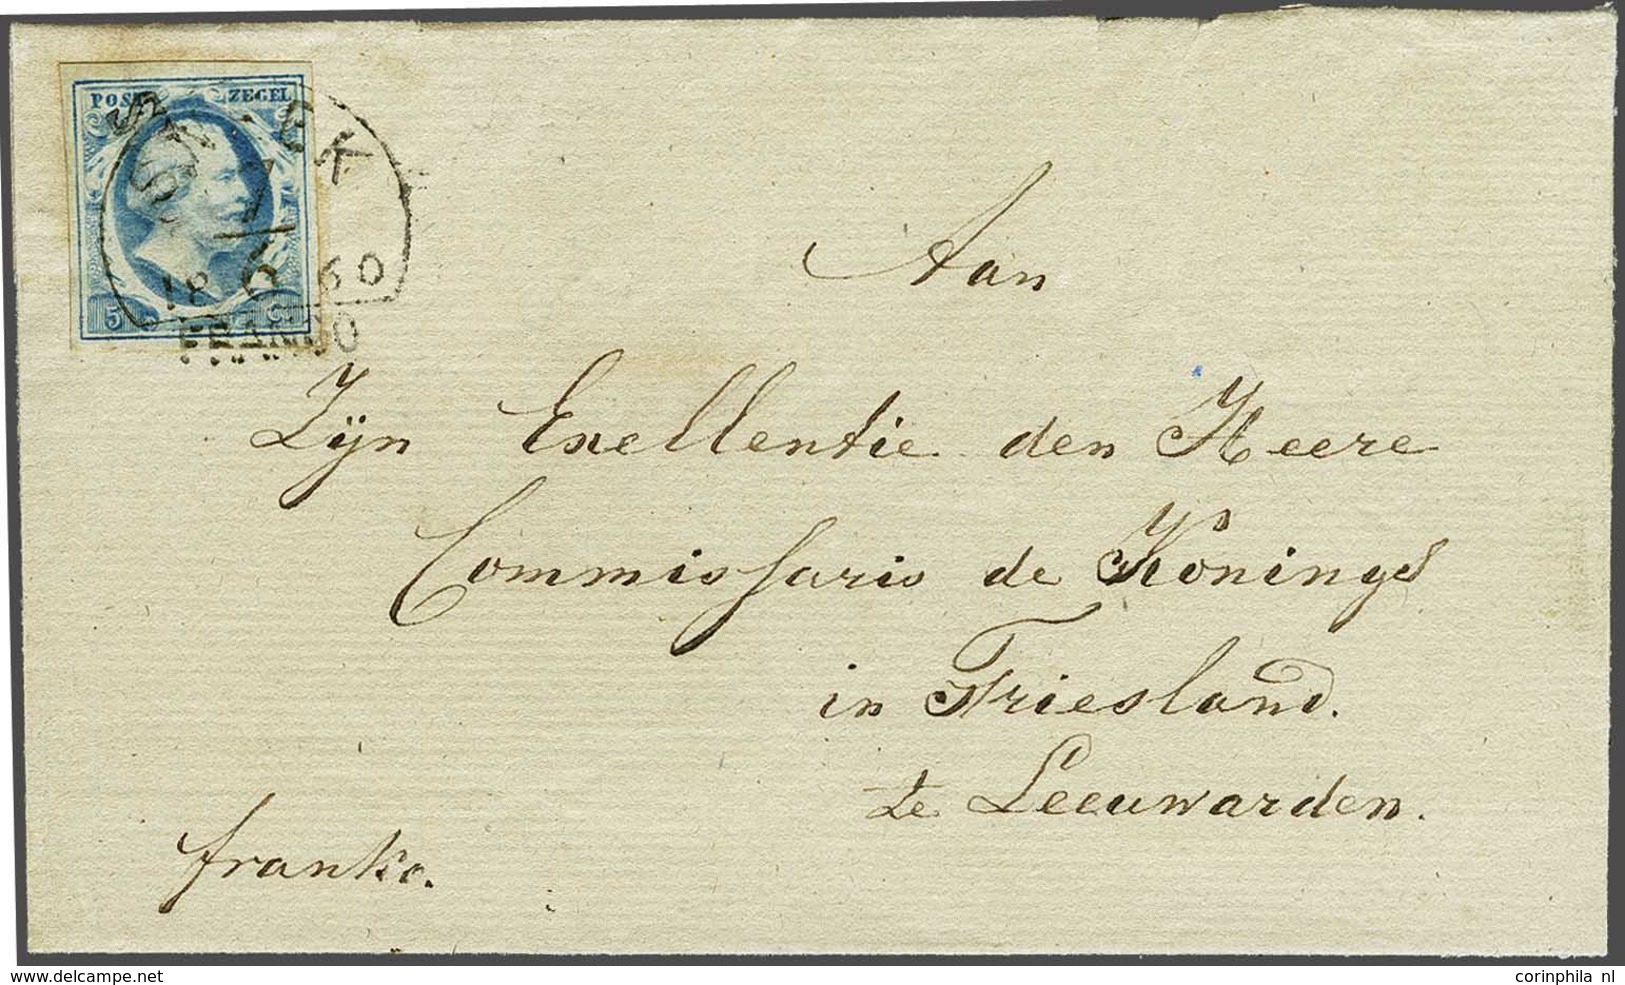 POST ZEGEL
SNEEK
7
6
18 60
5 C.
FRANCO
Aan
Zijn Exellentie den Heere
Commissaris de Konings
in Friesland.
te Leeuwarden.
franko.
www.delcampe.net
corinphila nl